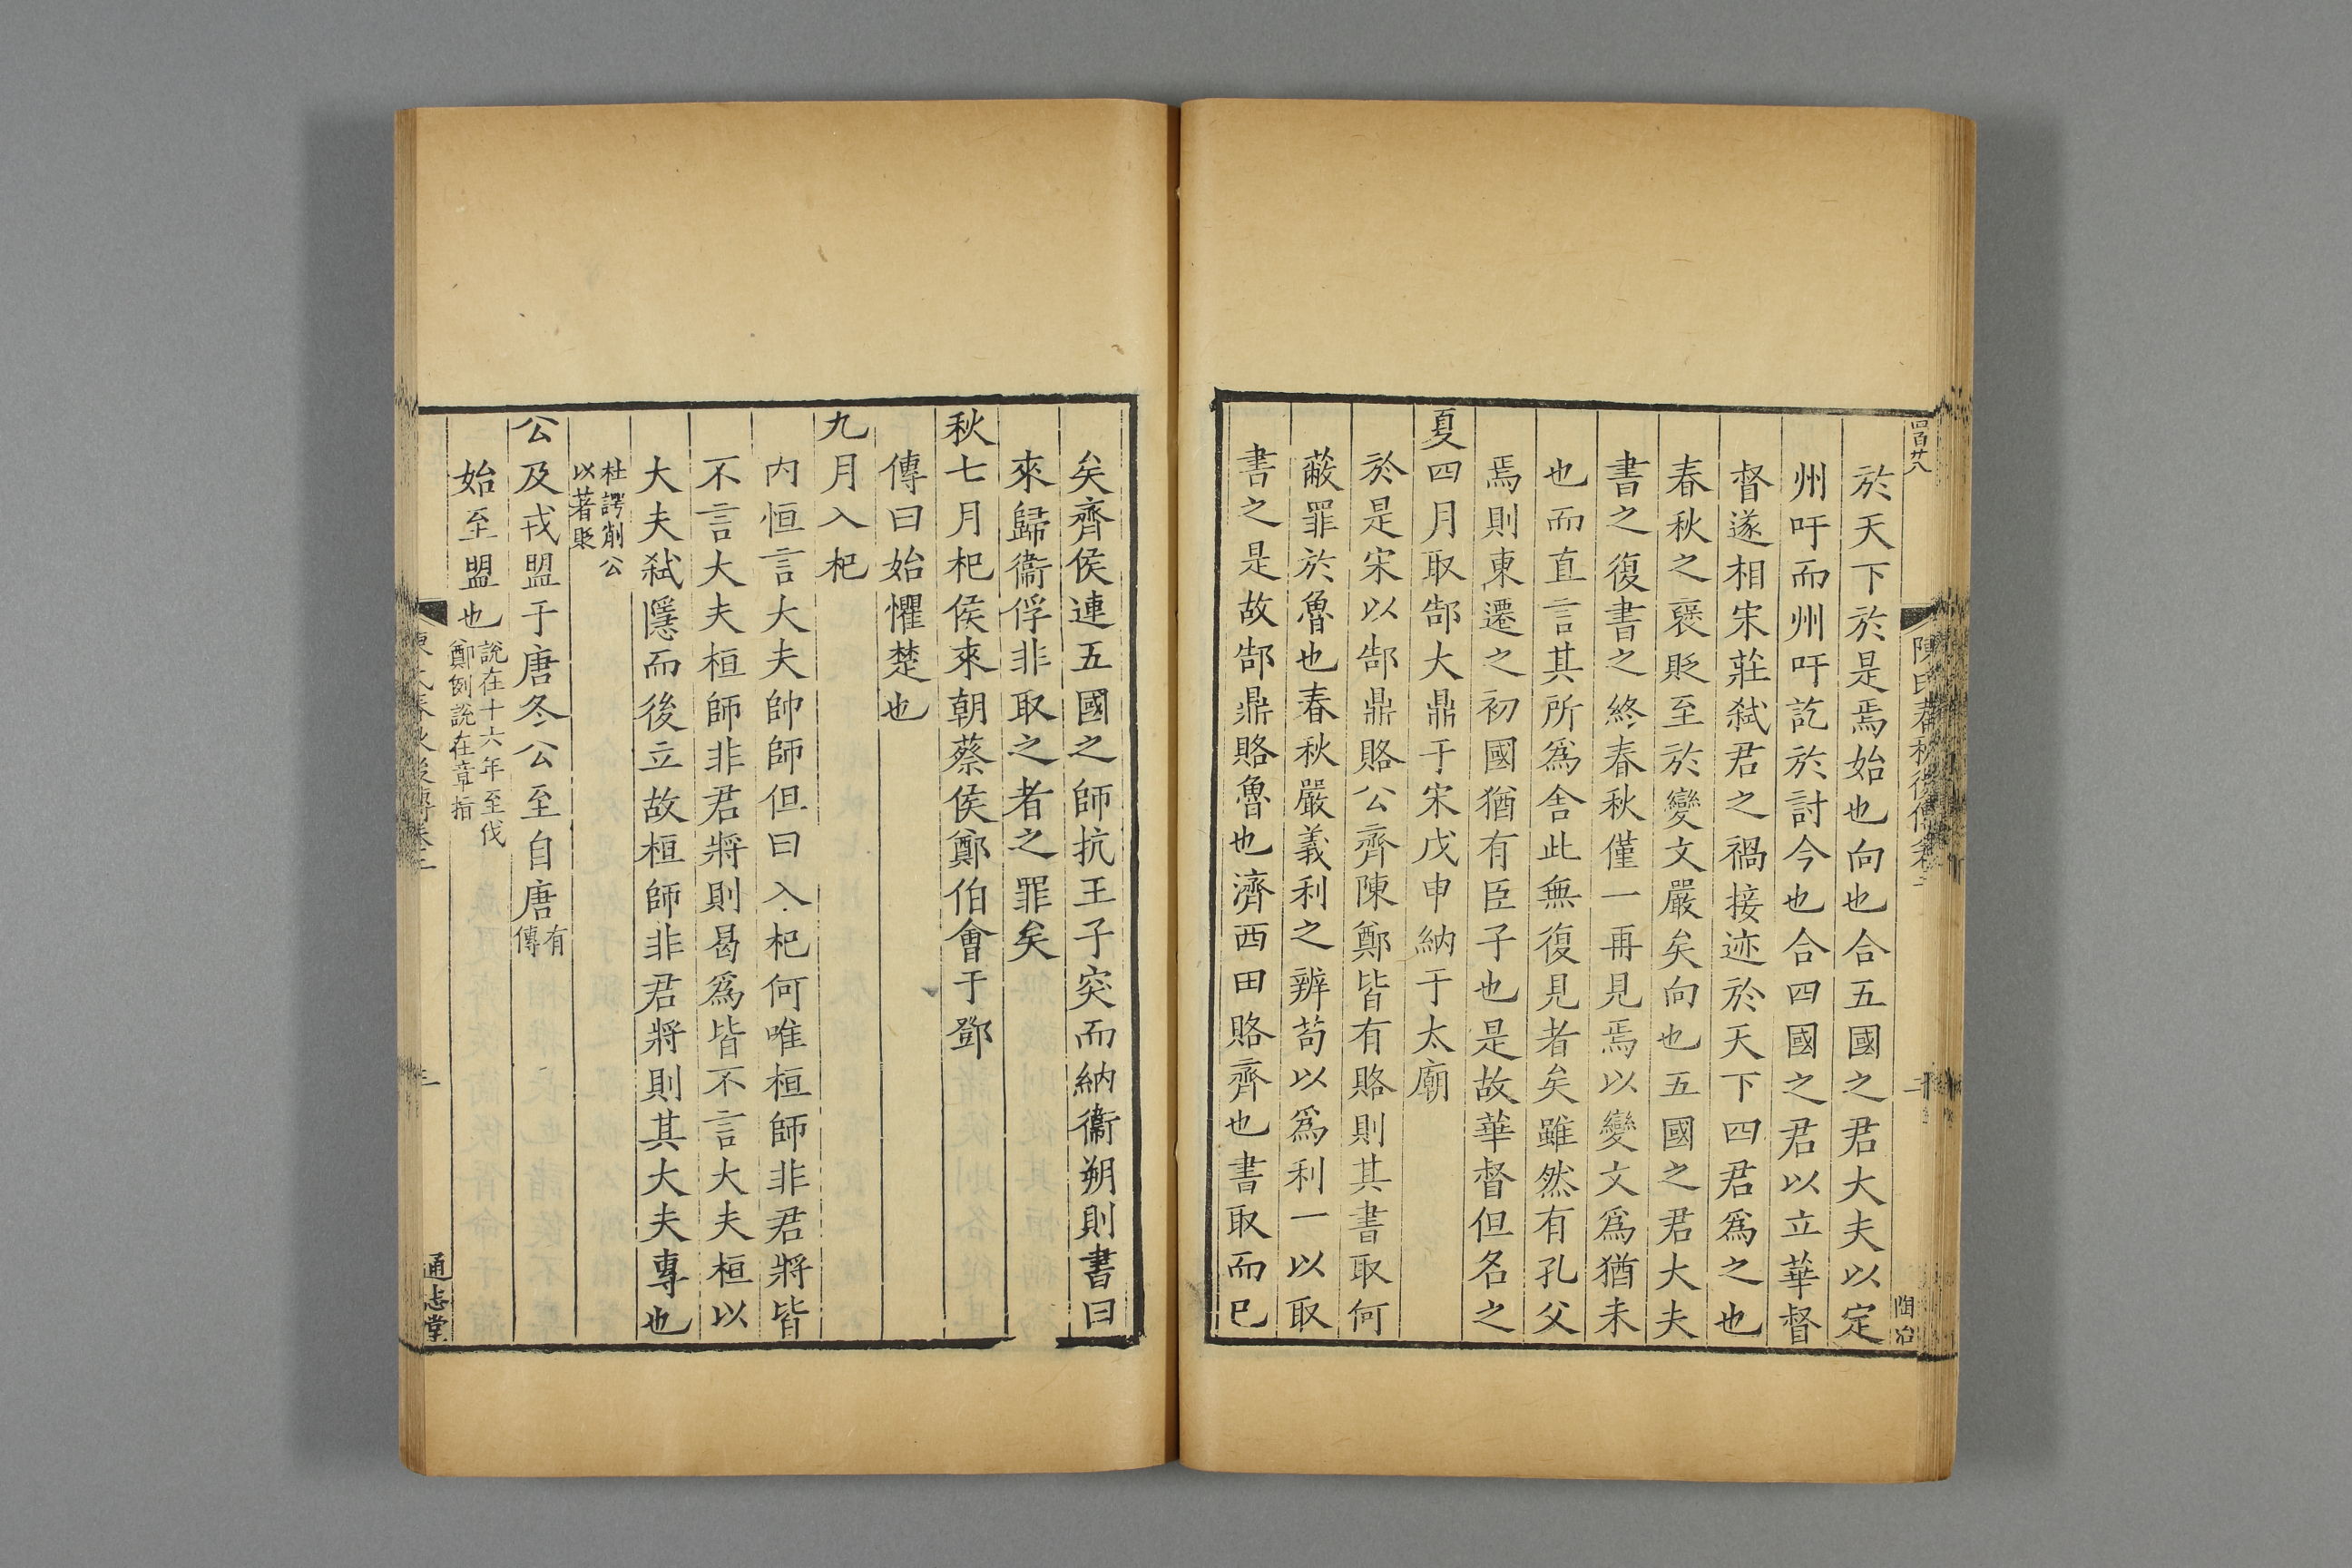 四百廿八
陶冶
於天下於是焉始也向也合五國之君大夫以定
州吁而州吁訖於討今也合四國之君以立華督
督遂相宋莊弑君之禍接迹於天下四君爲之也
春秋之襃貶至於變文嚴矣向也五國之君大夫
書之復書之終春秋僅一再見焉以變文爲猶未
也而直言其所爲舍此無復見者矣雖然有孔父
焉則東遷之初國猶有臣子也是故華督但名之
夏四月取郜大鼎于宋戊申納于太廟
於是宋以郜鼎賂公齊陳鄭皆有賂則其書取何
蔽罪於魯也春秋嚴義利之辨苟以爲利一以取
書之是故郜鼎賂魯也濟西田賂齊也書取而已
矣齊侯連五國之師抗王子突而納衞朔則書曰
來歸衞俘非取之者之罪矣
秋七月杞侯來朝蔡侯鄭伯會于鄧
傳曰始懼楚也
九月入杞
内恒言大夫帥師但曰入杞何唯桓師非君將皆
不言大夫桓師非君將則曷爲皆不言大夫桓以
大夫弑隱而後立故桓師非君將則其大夫專也
杜諤削公
以著貶
公及戎盟于唐冬公至自唐有傳
始至盟也說在十六年至伐
鄭例說在章指
通志堂